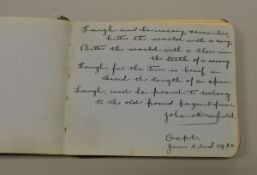 Laugh and be merry, remember,
better the world with a song,
Better the world with a blow in
the teeth of a wrong
Laugh, for the time is brief, a
thread the length of a span.
Laugh, and be proud to belong
to the old proud pageant of man.
John Masefield.
Capt.
June 193